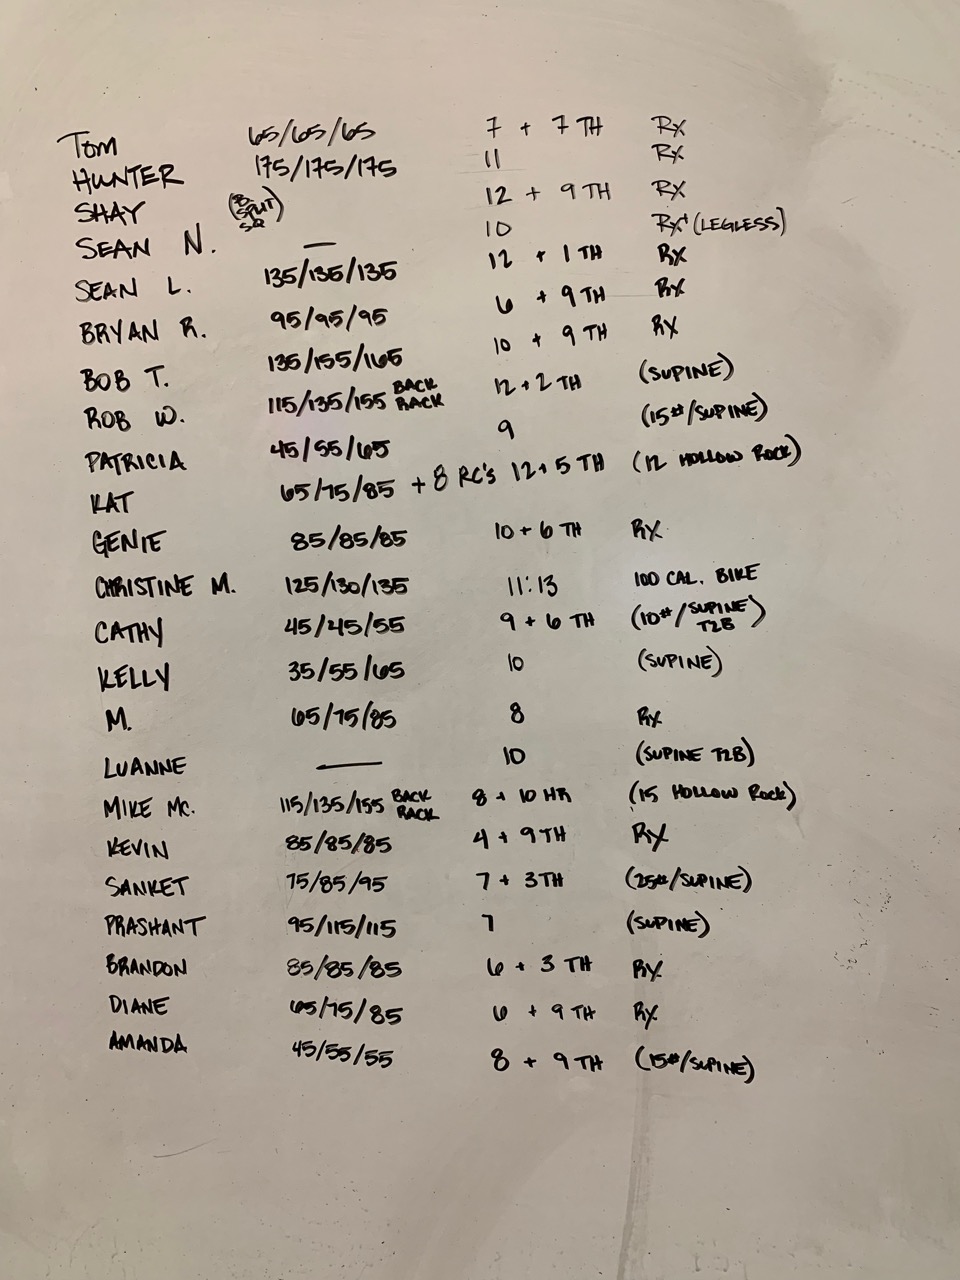 Tom 65/65/65 7 + 7 TH Rx
HUNTER 175/175/175 11 Rx
SHAY (B. SPLIT SQ) 12 + 9 TH Rx
SEAN N. — 10 Rx+ (LEGLESS)
SEAN L. 135/135/135 12 + 1 TH Rx
BRYAN R. 95/95/95 6 + 9 TH Rx
BOB T. 135/155/165 10 + 9 TH Rx
ROB W. 115/135/155 BACK RACK 12 + 2 TH (SUPINE)
PATRICIA 45/55/65 9 (15#/SUPINE)
KAT 65/75/85 + 8 RC's 12 + 5 TH (12 HOLLOW ROCK)
GENIE 85/85/85 10 + 6 TH Rx
CHRISTINE M. 125/130/135 11:13 100 CAL. BIKE
CATHY 45/45/55 9 + 6 TH (10#/SUPINE T2B)
KELLY 35/55/65 10 (SUPINE)
M. 65/75/85 8 Rx
LUANNE — 10 (SUPINE T2B)
MIKE MC. 115/135/155 BACK RACK 8 + 10 HR (15 HOLLOW ROCK)
KEVIN 85/85/85 4 + 9 TH Rx
SANKET 75/85/95 7 + 3 TH (25#/SUPINE)
PRASHANT 95/115/115 7 (SUPINE)
BRANDON 85/85/85 6 + 3 TH Rx
DIANE 65/75/85 6 + 9 TH Rx
AMANDA 45/55/55 8 + 9 TH (15#/SUPINE)